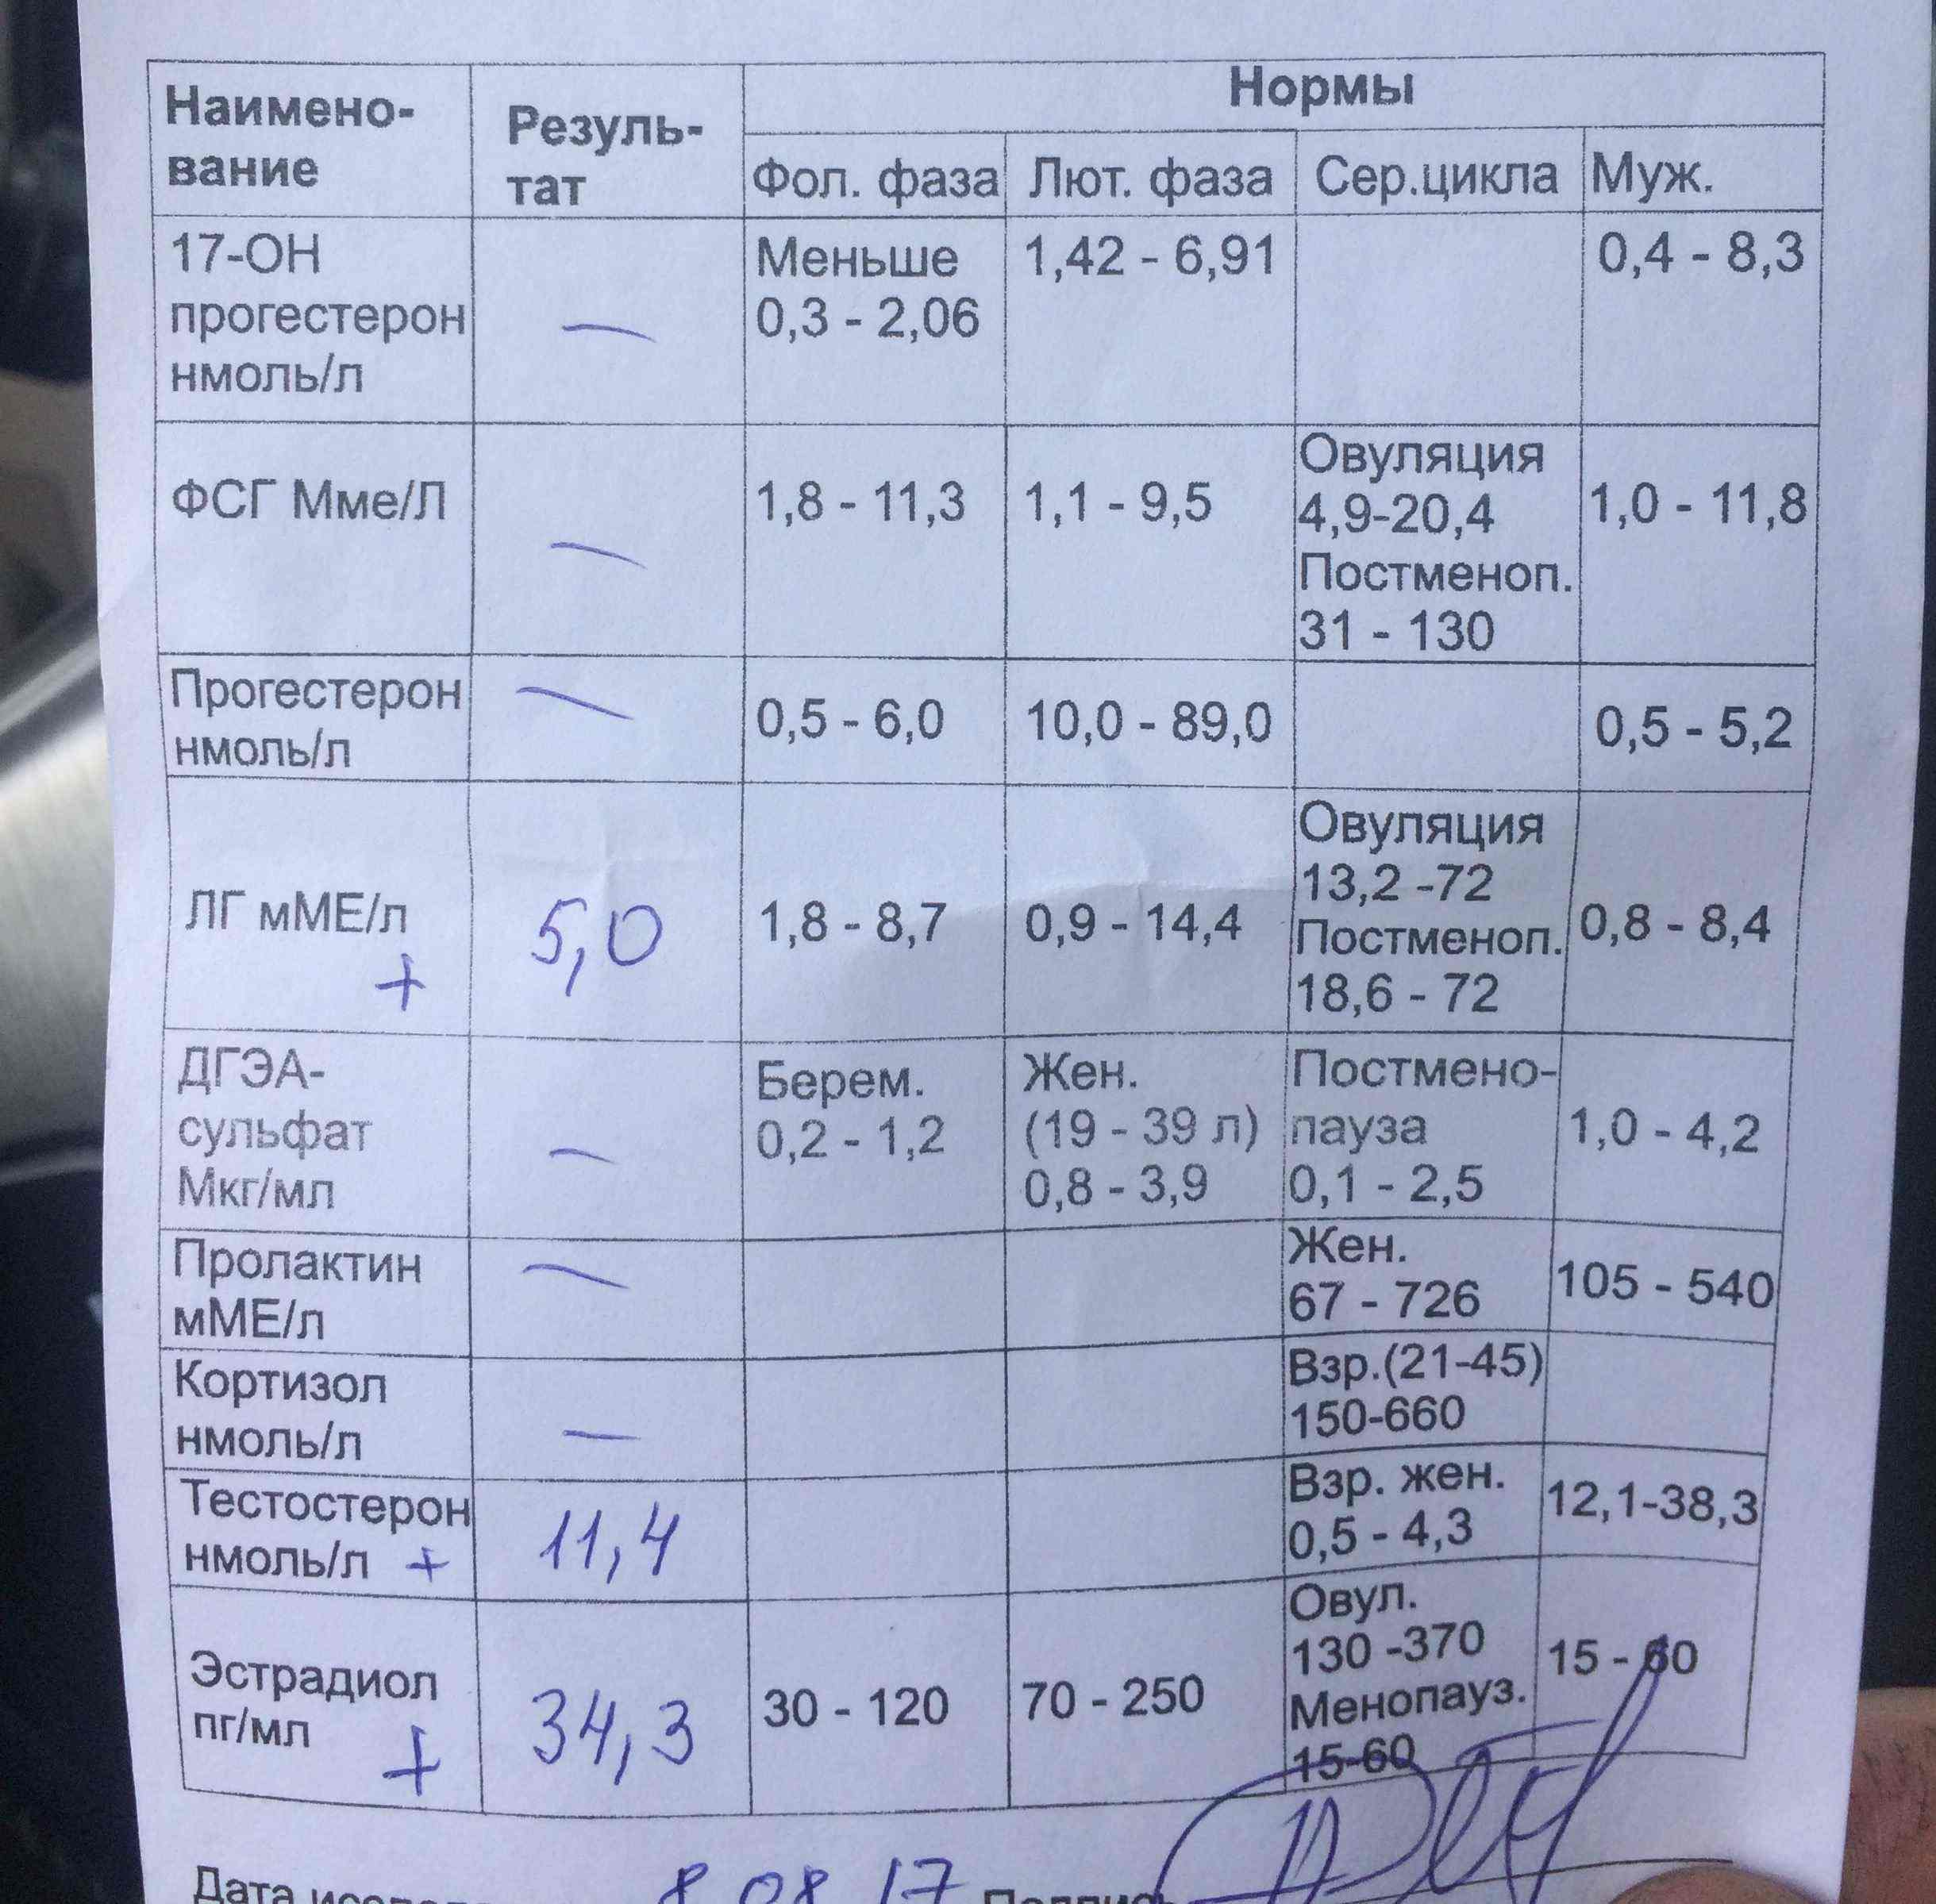 Нормы
Наимено-
вание
Резуль-
тат
Фол. фаза
Лют. фаза
Сер.цикла
Муж.
17-ОН
прогестерон
нмоль/л
—
Меньше
0,3 - 2,06
1,42 - 6,91
0,4 - 8,3
ФСГ Мме/Л
—
1,8 - 11,3
1,1 - 9,5
Овуляция
4,9-20,4
Постменоп.
31 - 130
1,0 - 11,8
Прогестерон
нмоль/л
—
0,5 - 6,0
10,0 - 89,0
0,5 - 5,2
ЛГ мМЕ/л
+
5,0
1,8 - 8,7
0,9 - 14,4
Овуляция
13,2 -72
Постменоп.
18,6 - 72
0,8 - 8,4
ДГЭА-
сульфат
Мкг/мл
—
Берем.
0,2 - 1,2
Жен.
(19 - 39 л)
0,8 - 3,9
Постмено-
пауза
0,1 - 2,5
1,0 - 4,2
Пролактин
мМЕ/л
—
Жен.
67 - 726
105 - 540
Кортизол
нмоль/л
—
Взр.(21-45)
150-660
Тестостерон
нмоль/л +
11,4
Взр. жен.
0,5 - 4,3
12,1-38,3
Эстрадиол
пг/мл
+
34,3
30 - 120
70 - 250
Овул.
130 -370
Менопауз.
15-60
15 - 60
Дата 8.08.17 Подпись